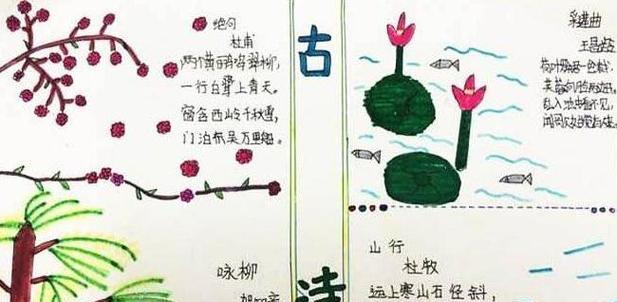 绝句
杜甫
两个黄鹂鸣翠柳,
一行白鹭上青天。
窗含西岭千秋雪,
门泊东吴万里船。
咏柳
古
诗
采莲曲
王昌龄
荷叶罗裙一色裁,
芙蓉向脸两边开。
乱入池中看不见,
山行
杜牧
远上寒山石径斜,